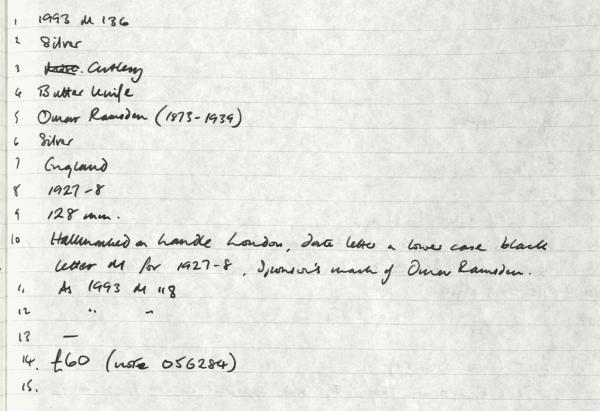 1 1993 M 136
2 Silver
3 Cutlery
4 Butter Knife
5 Omar Ramsden (1873-1939)
6 Silver
7 England
8 1927-8
9 128 mm.
10 Hallmarked on handle London, date letter a lower case black
letter M for 1927-8, Sponsor's mark of Omar Ramsden.
11 As 1993 M 118
12 " "
13 —
14. £60 (note 056284)
15.